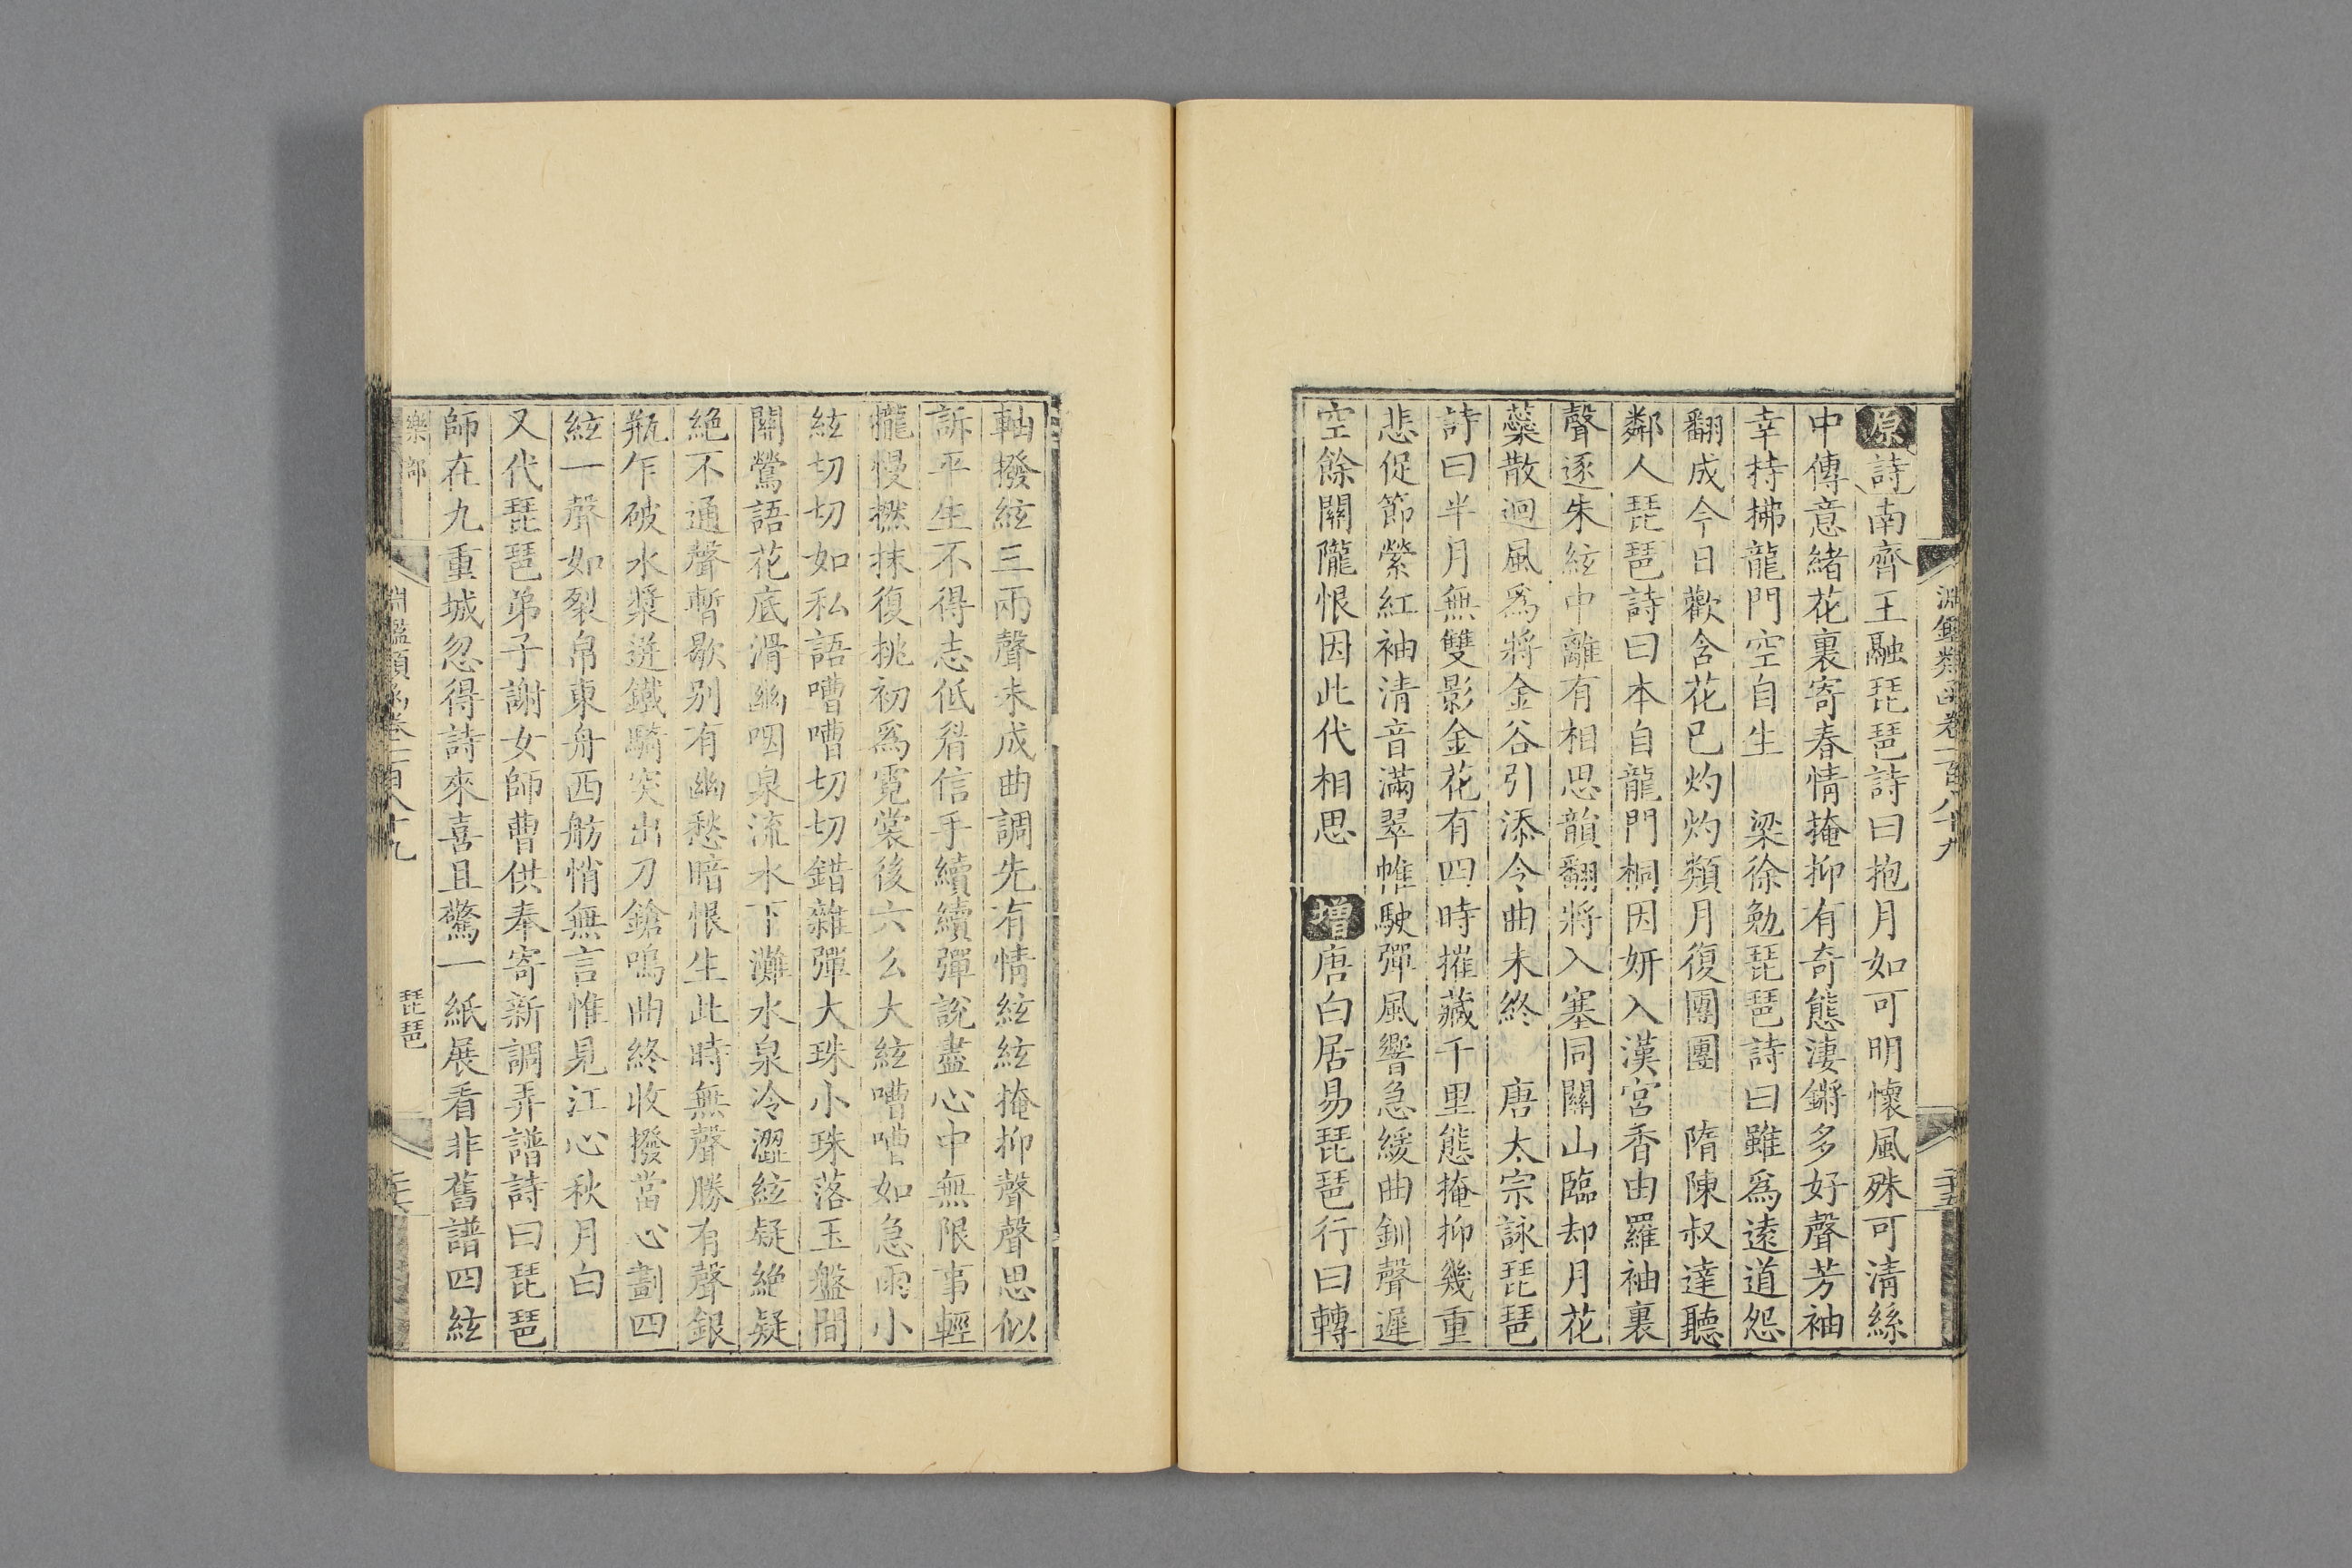 淵鑑類函卷一百八十九
二十五
原詩南齊王融琵琶詩曰抱月如可明懷風殊可清絲
中傳意緒花裏寄春情掩抑有奇態淒鏘多好聲芳袖
幸持拂龍門空自生 梁徐勉琵琶詩曰雖爲遠道怨
翻成今日歡含花已灼灼類月復團團 隋陳叔達聽
鄰人琵琶詩曰本自龍門桐因妍入漢宮香由羅袖裏
聲逐朱絃中離有相思韻翻將入塞同關山臨却月花
蘂散迴風爲將金谷引添今曲未終 唐太宗詠琵琶
詩曰半月無雙影金花有四時摧藏千里態掩抑幾重
悲促節縈紅袖清音滿翠帷駛彈風響急緩曲釧聲遲
空餘關隴恨因此代相思 增唐白居易琵琶行曰轉
軸撥絃三兩聲未成曲調先有情絃絃掩抑聲聲思似
訴平生不得志低眉信手續續彈說盡心中無限事輕
攏慢撚抹復挑初爲霓裳後六幺大絃嘈嘈如急雨小
絃切切如私語嘈嘈切切錯雜彈大珠小珠落玉盤間
關鶯語花底滑幽咽泉流水下灘水泉冷澀絃疑絶疑
絶不通聲暫歇別有幽愁暗恨生此時無聲勝有聲銀
瓶乍破水漿迸鐵騎突出刀鎗鳴曲終收撥當心劃四
絃一聲如裂帛東舟西舫悄無言惟見江心秋月白
又代琵琶弟子謝女師曹供奉寄新調弄譜詩曰琵琶
師在九重城忽得詩來喜且驚一紙展看非舊譜四絃
樂部
淵鑑類函卷一百八十九
琵琶
二十六